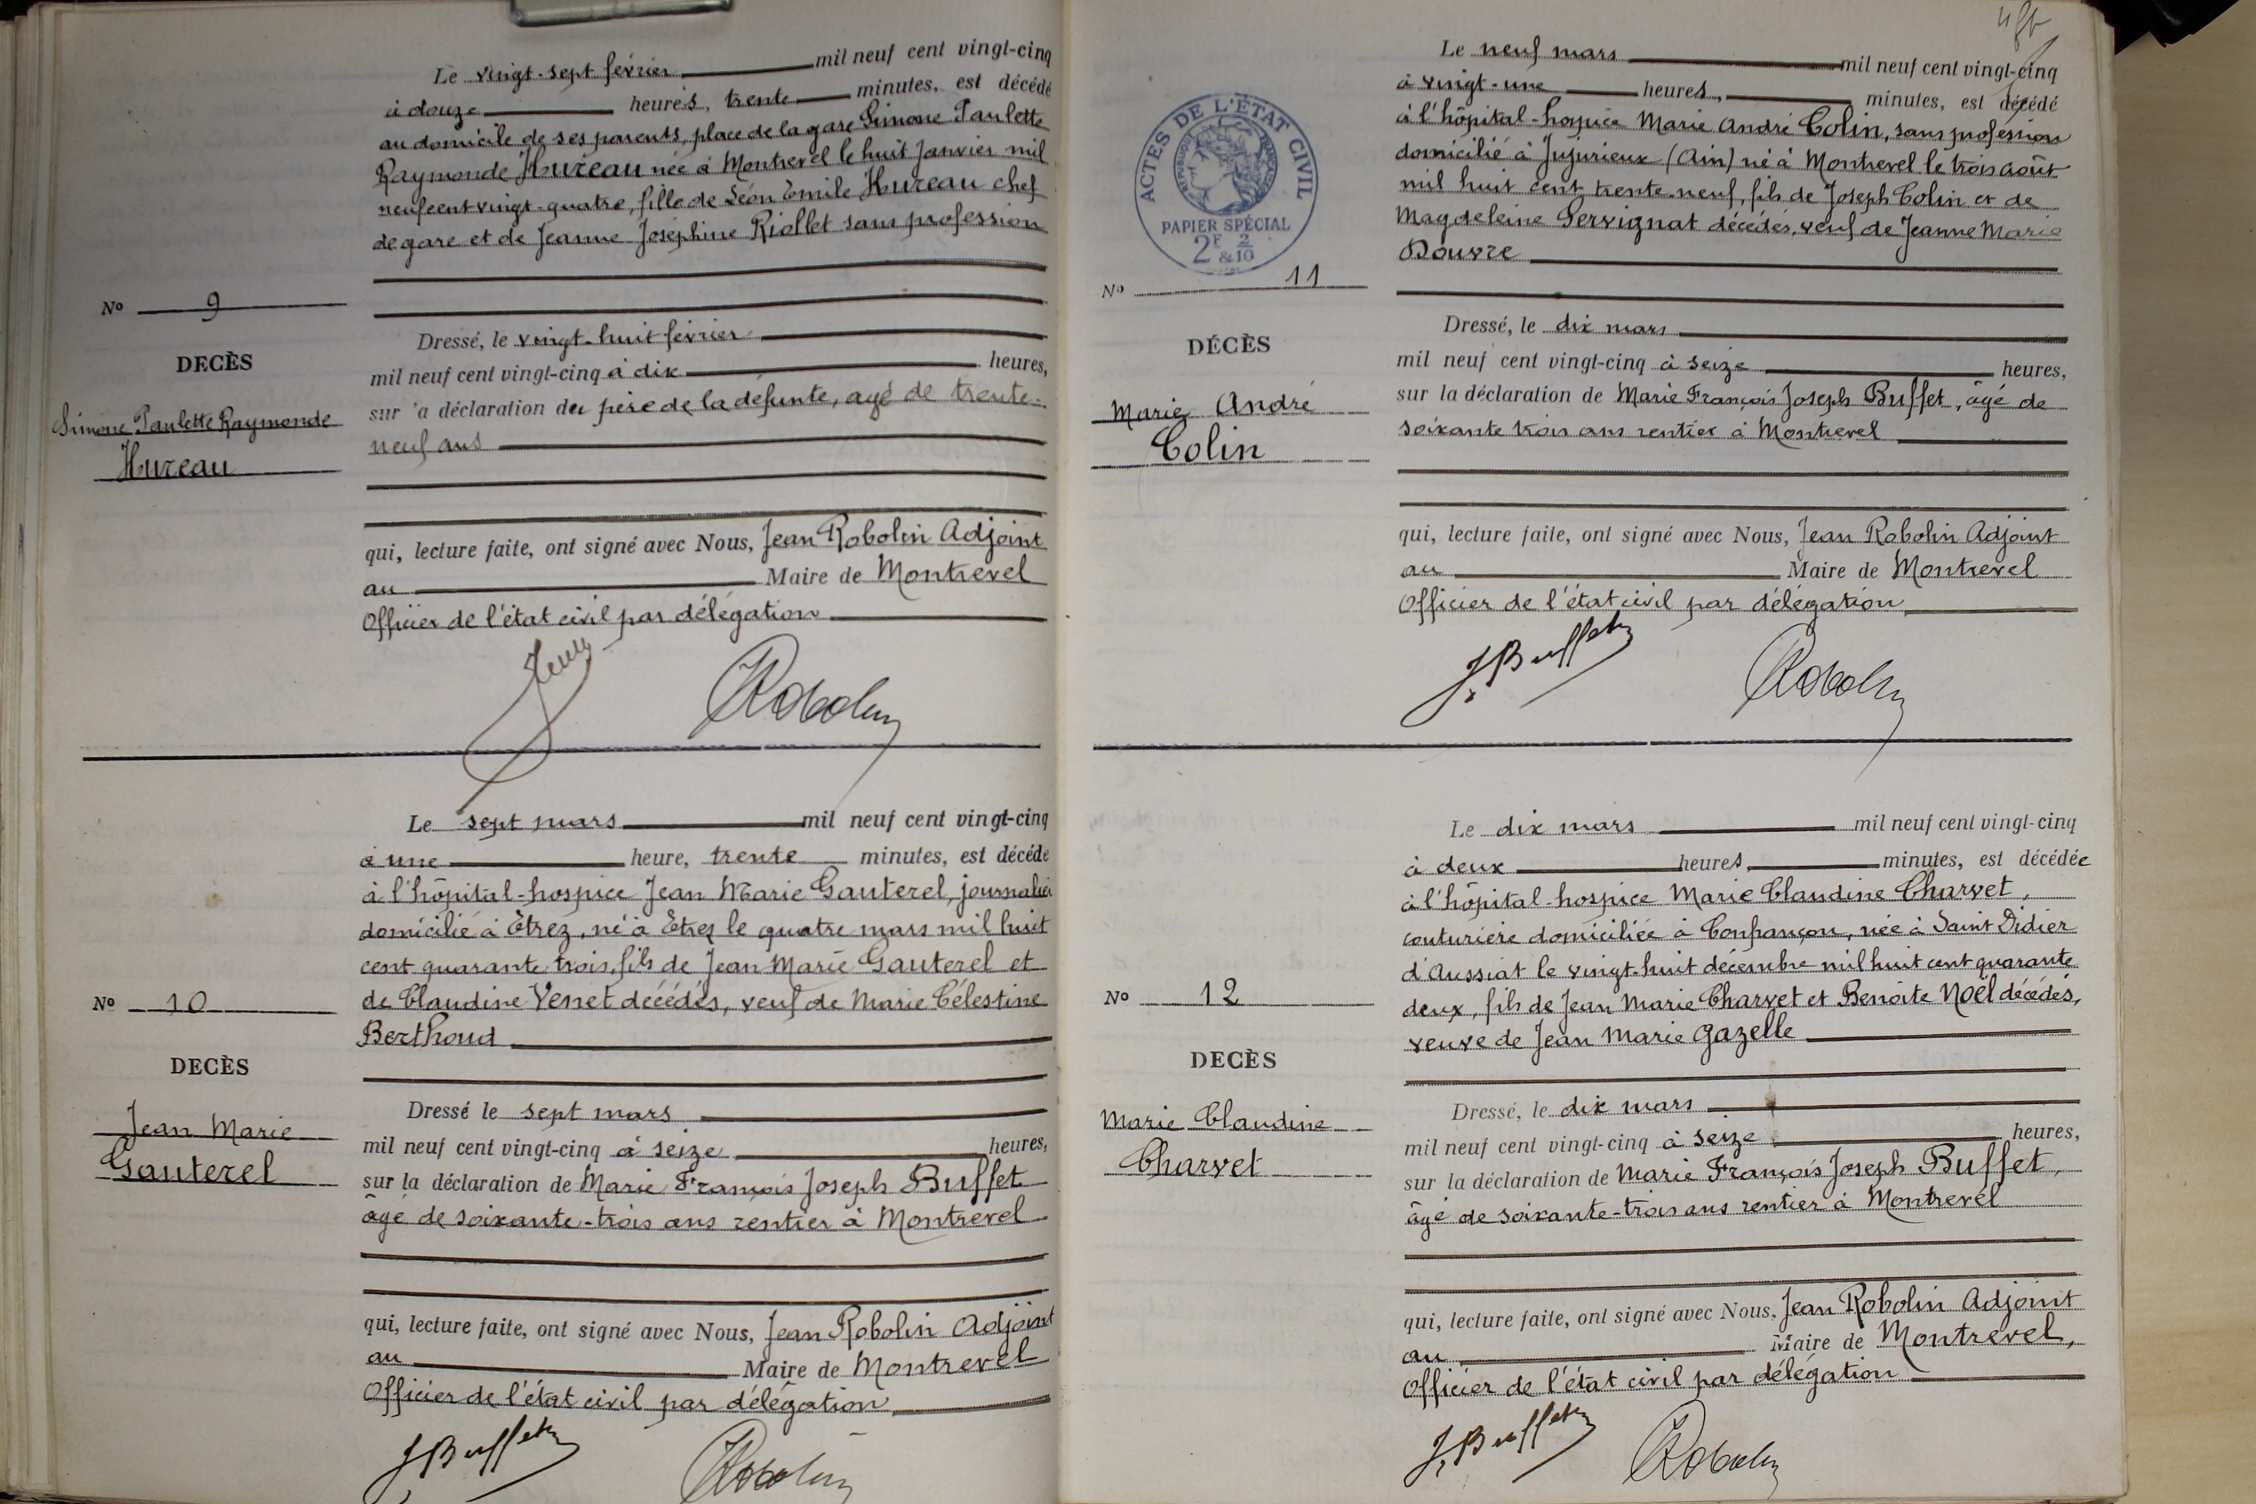 Le vingt-sept février mil neuf cent vingt-cinq
à douze heures, trente minutes, est décédé
au domicile de ses parents, place de la gare Simone Paulette
Raymonde Hureau née à Montrevel le huit janvier mil
neuf cent vingt-quatre, fille de Léon Emile Hureau chef
de gare et de Jeanne Joséphine Riollet sans profession
No 9
DECÈS
Simone Paulette Raymonde
Hureau
Dressé, le vingt-huit février
mil neuf cent vingt-cinq à dix heures,
sur 'a déclaration du père de la défunte, agé de trente-
neuf ans
qui, lecture faite, ont signé avec Nous, Jean Robolin Adjoint
au Maire de Montrevel
Officier de l'état civil par délégation
Robolin
Le sept mars mil neuf cent vingt-cinq
à une heure, trente minutes, est décédé
à l'hôpital-hospice Jean Marie Gauterel, journalier
domicilié à Étrez, né à Etrez le quatre mars mil huit
cent quarante trois, fils de Jean Marie Gauterel et
de Claudine Venet décédés, veuf de Marie Célestine
Berthoud
No 10
DECÈS
Jean Marie
Gauterel
Dressé le sept mars
mil neuf cent vingt-cinq à seize heures,
sur la déclaration de Marie François Joseph Buffet
âgé de soixante-trois ans rentier à Montrevel
qui, lecture faite, ont signé avec Nous, Jean Robolin Adjoint
au Maire de Montrevel
Officier de l'état civil par délégation
J. Buffet
Robolin
Le neuf mars mil neuf cent vingt-cinq
à vingt-une heures, minutes, est décédé
à l'hôpital-hospice Marie André Colin, sans profession
domicilié à Jujurieux (Ain) né à Montrevel le trois août
mil huit cent trente-neuf, fils de Joseph Colin et de
Magdeleine Gervignat décédés, veuf de Jeanne Marie
Douvre
ACTES DE L'ÉTAT CIVIL
RÉPUBLIQUE FRANÇAISE
PAPIER SPÉCIAL
2F & 2/10
No 11
DÉCÈS
Marie André
Colin
Dressé, le dix mars
mil neuf cent vingt-cinq à seize heures,
sur la déclaration de Marie François Joseph Buffet, âgé de
soixante trois ans rentier à Montrevel
qui, lecture faite, ont signé avec Nous, Jean Robolin Adjoint
au Maire de Montrevel
Officier de l'état civil par délégation
J. Buffet
Robolin
Le dix mars mil neuf cent vingt-cinq
à deux heures, minutes, est décédée
à l'hôpital-hospice Marie Claudine Charvet,
couturière domiciliée à Confrançon, née à Saint Didier
d'Aussiat le vingt-huit décembre mil huit cent quarante
deux, fils de Jean Marie Charvet et Benoite Noël décédés,
veuve de Jean Marie Gazelle
No 12
DECÈS
Marie Claudine
Charvet
Dressé, le dix mars
mil neuf cent vingt-cinq à seize heures,
sur la déclaration de Marie François Joseph Buffet,
âgé de soixante-trois ans rentier à Montrevel
qui, lecture faite, ont signé avec Nous, Jean Robolin Adjoint
au Maire de Montrevel,
Officier de l'état civil par délégation
J. Buffet
Robolin